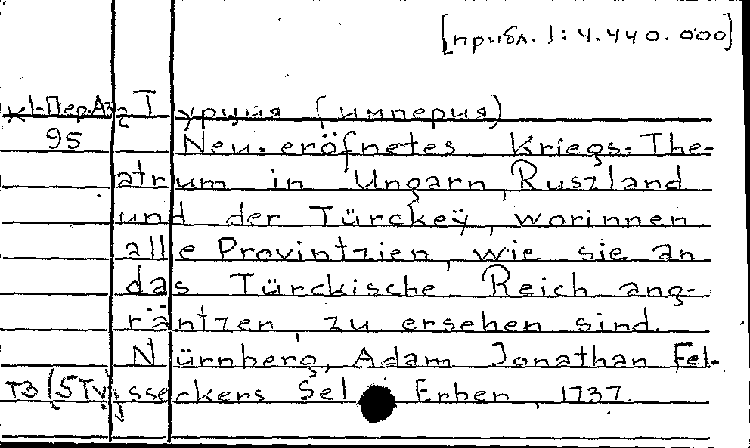 [прибл. 1:4.440.000]
к1-Пер.Аз 2 Турция (империя)
95 Neu-eröfnetes Kriegs-The-
atrum in Ungarn, Ruszland
und der Türckeÿ, worinnen
alle Provintzien, wie sie an
das Türckische Reich ang-
räntzen, zu ersehen sind.
Nürnberg, Adam Jonathan Fel-
sseckers Sel Erben, 1737.